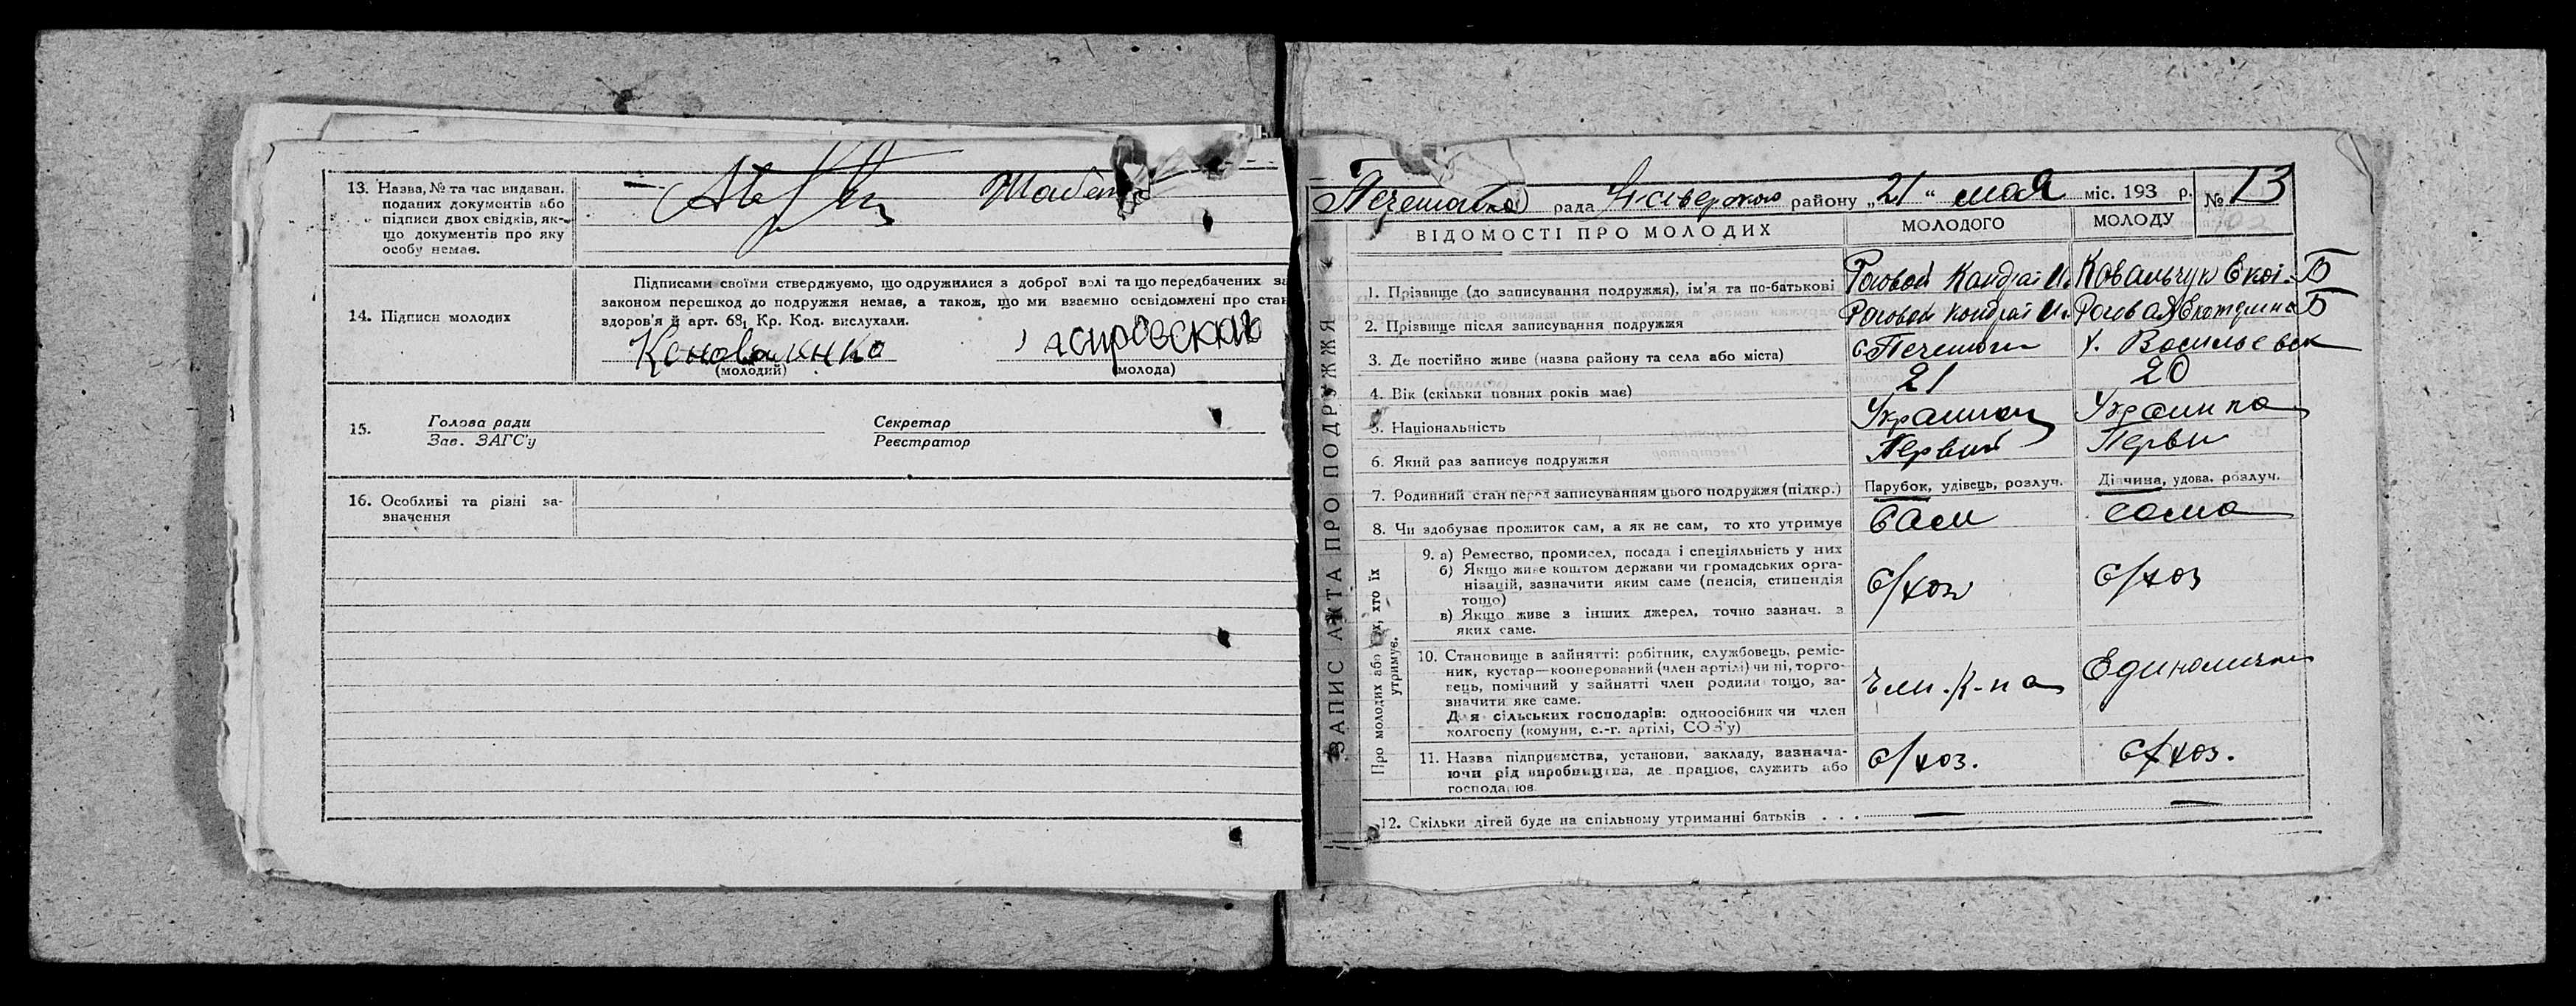 13. Назва, № та час видаван.
поданих документів або
підписи двох свідків, як-
що документів про яку
особу немає.
14. Підписи молодих
Підписами своїми стверджуємо, що одружилися з доброї волі та що передбачених за
законом перешкод до подружжя немає, а також, що ми взаємно освідомлені про стан
здоров'я й арт. 68₁ Кр. Код. вислухали.
Коноваленко
(молодий)
(молода)
15.
Голова ради
Зав. ЗАГС'у
Секретар
Реєстратор
16. Особливі та різні за-
значення
ЗАПИС АКТА ПРО ПОДРУЖЖЯ
рада району „21“ мая міс. 193 р. № 13
ВІДОМОСТІ ПРО МОЛОДИХ
МОЛОДОГО
МОЛОДУ
1. Прізвище (до записування подружжя), ім'я та по-батькові
Роговой Кондрат И.
Ковальчук Екат. Б
2. Прізвище після записування подружжя
Роговой Кондрат И.
Роговая Екатерина Б
3. Де постійно живе (назва району та села або міста)
4. Вік (скільки повних років має)
21
20
5. Національність
Украинец
Украинка
6. Який раз записує подружжя
Первый
Первы
7. Родинний стан перед записуванням цього подружжя (підкр.)
Парубок, удівець, розлуч.
Дівчина, удова, розлуч.
8. Чи здобуває прожиток сам, а як не сам, то хто утримує
сам
сама
Про молодих або тих, хто їх
утримує.
9. а) Ремество, промисел, посада і спеціяльність у них
б) Якщо живе коштом держави чи громадських орга-
нізацій, зазначити яким саме (пенсія, стипендія
тощо)
в) Якщо живе з інших джерел, точно зазнач. з
яких саме.
с/хоз
с/хоз
10. Становище в зайнятті: робітник, службовець, реміс-
ник, кустар—кооперований (член артілі) чи ні, торго-
вець, помічний у зайнятті член родини тощо, за-
значити яке саме.
Для сільських господарів: одноосібник чи член
колгоспу (комуни, с.-г. артілі, СОЗ'у)
11. Назва підприємства, установи, закладу, вазнача-
ючи рід виробництва, де працює, служить або
господарює
с/хоз.
с/хоз.
12. Скільки дітей буде на спільному утриманні батьків . . .